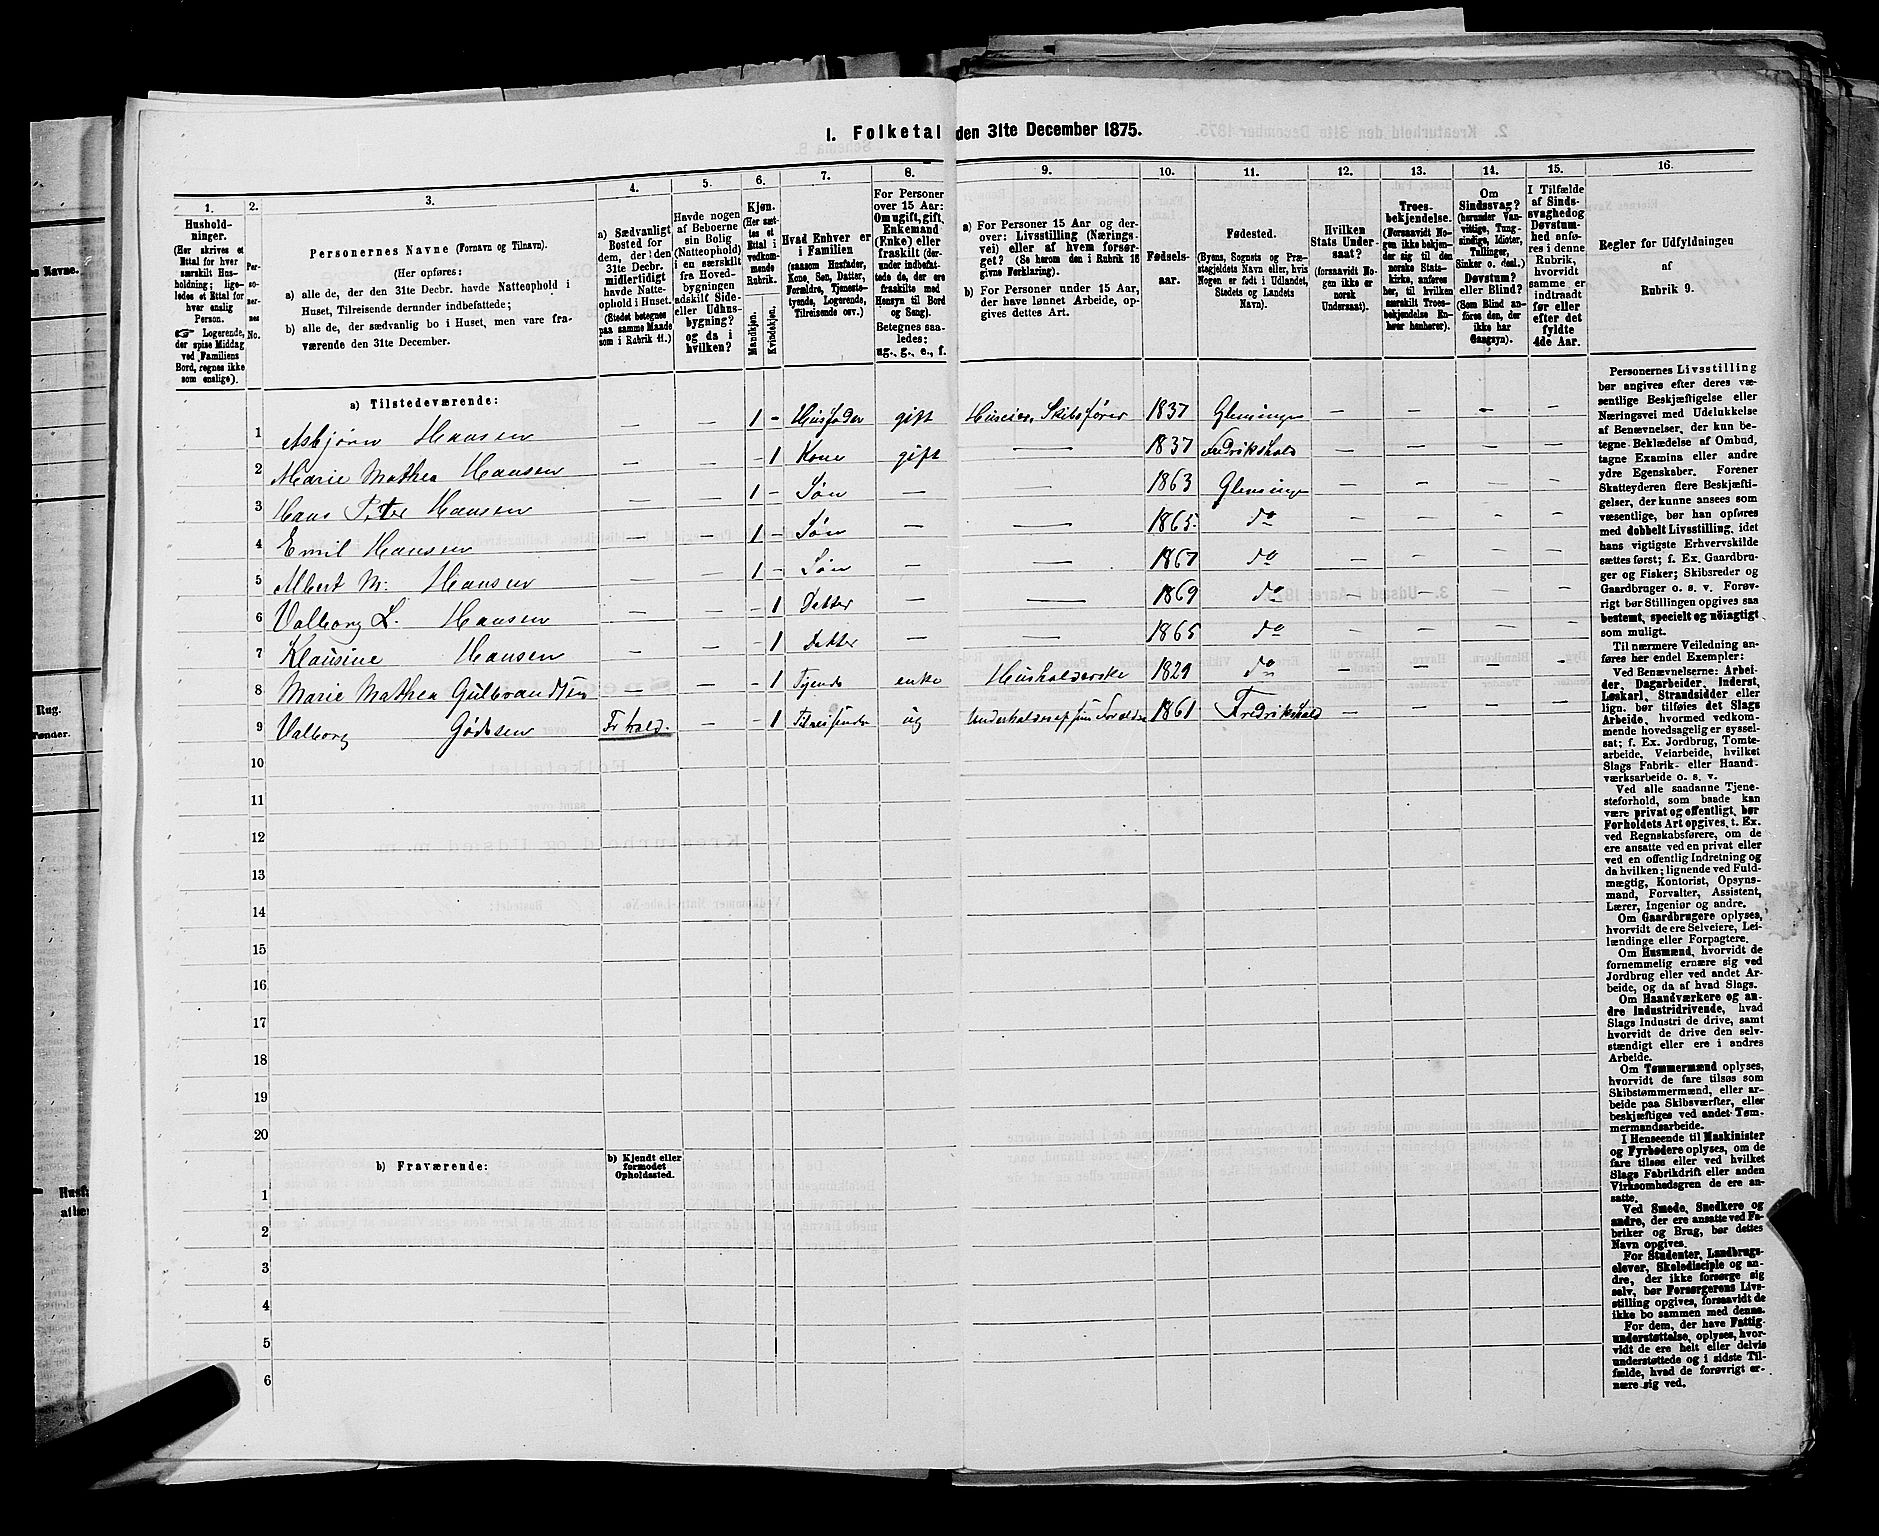 I. Folketal den 31te December 1875.
1.
Hushold-
ninger.
(Her skrives et
Ettal for hver
særskilt Hus-
holdning; lige-
ledes et Ettal for
hver enslig
Person.
☞ Logerende,
der spise Middag
ved Familiens
Bord, regnes ikke
som enslige).
2.
Per-
so-
ner-
nes
No.
3.
Personernes Navne (Fornavn og Tilnavn).
(Her opføres:
a) alle de, der den 31te Decbr. havde Natteophold i
Huset, Tilreisende derunder indbefattede;
b) alle de, der sædvanlig bo i Huset, men vare fra-
værende den 31te December.
4.
a) Sædvanligt
Bosted for
dem, der den
31te Decbr.
midlertidigt
havde Natte-
ophold i Huset.
(Stedet betegnes
paa samme Maade
som i Rubrik 11.)
5.
Havde nogen
af Beboerne
sin Bolig
(Natteophold)
i en særskilt
fra Hoved-
bygningen
adskilt Side-
eller Udhus-
bygning?
og da i
hvilken?
6.
Kjøn.
(Her sæt-
tes et
Ettal i
vedkom-
mende
Rubrik.
Mandkjøn.
Kvindekjøn.
7.
Hvad Enhver er
i Familien
(saasom Husfader,
Kone, Søn, Datter,
Forældre, Tjeneste-
tyende, Logerende,
Tilreisende osv.)
8.
For Personer
over 15 Aar:
Om ugift, gift,
Enkemand
(Enke) eller
fraskilt (der-
under indbefat-
tede de, der ere
fraskilte med
Hensyn til Bord
og Seng).
Betegnes saa-
ledes:
ug., g., e., f.
9.
a) For Personer 15 Aar og der-
over: Livsstilling (Nærings-
vei) eller af hvem forsør-
get? (Se herom den i Rubrik 16
givne Forklaring).
b) For Personer under 15 Aar,
der have lønnet Arbeide, op-
gives dettes Art.
10.
Fødsels-
aar.
11.
Fødested.
(Byens, Sognets og Præ-
stegjeldets Navn eller, hvis
Nogen er født i Udlandet,
Stedets og Landets
Navn).
12.
Hvilken
Stats Under-
saat?
(forsaavidt No-
gen ikke er
norsk
Undersaat).
13.
Troes-
bekjendelse.
(Forsaavidt No-
gen ikke bekjen-
der sig til den
norske Stats-
kirke, anføres
her, til hvilken
særskilt Troes-
bekjendelse En-
hver henhører).
14.
Om
Sindssvag?
(herunder Van-
vittige, Tung-
sindige, Idioter,
Tullinger,
Sinker o. desl.)
Døvstum?
eller Blind?
(Som Blind an-
føres den, der
ikke har
Gangsyn).
15.
I Tilfælde
af Sinds-
svaghed og
Døvstum-
hed anfø-
res i denne
Rubrik,
hvorvidt
samme er
indtraadt
før eller
efter det
fyldte
4de Aar.
16.
Regler for Udfyldningen
af
Rubrik 9.
a) Tilstedeværende:
1 Asbjørn Hansen — — 1 - Husfader gift Huseier, Skibsfører 1837 Glemminge — — — —
2 Marie Mathea Hansen — — - 1 Kone gift — 1837 Fredrikshald — — — —
3 Hans Peter Hansen — — 1 - Søn — — 1863 Glemminge — — — —
4 Emil Hansen — — 1 - Søn — — 1865 do — — — —
5 Albert M. Hansen — — 1 - Søn — — 1867 do — — — —
6 Valborg L. Hansen — — - 1 Datter — — 1869 do — — — —
7 Klausine Hansen — — - 1 Datter — — 1865 do — — — —
8 Marie Mathea Gulbrandsen — — - 1 Tyende enke Husholderske 1829 do — — — —
9 Valborg Frhald. — - 1 Tilreisende ug Underholdes af sine Forældre 1861 Fredrikshald — — — —
10
11
12
13
14
15
16
17
18
19
20
b) Fraværende:
b) Kjendt eller
formodet
Opholdssted.
1
2
3
4
5
6
Personernes Livsstilling
bør angives efter deres væ-
sentlige Beskjæftigelse eller
Næringsvei med Udelukkelse
af Benævnelser, der kun be-
tegne Beklædelse af Ombud,
tagne Examina eller andre
ydre Egenskaber. Forener
Skatteyderen flere Beskjæfti-
gelser, der kunne ansees som
væsentlige, bør han opføres
med dobbelt Livsstilling, idet
hans vigtigste Erhvervskilde
sættes først; f. Ex. Gaardbru-
ger og Fisker; Skibsreder og
Gaardbruger o. s. v. Forøv-
rigt bør Stillingen opgives saa
bestemt, specielt og nøiagtigt
som muligt.
Til nærmere Veiledning an-
føres her endel Exempler:
Ved Benævnelserne: Arbei-
der, Dagarbeider, Inderst,
Løskarl, Strandsidder eller
lign. bør tilføies det Slags
Arbeide, hvormed vedkom-
mende hovedsagelig er syssel-
sat; f. Ex. Jordbrug, Tomte-
arbeide, Veiarbeide, hvilket
Slags Fabrik- eller Haand-
værksarbeide o. s. v.
Ved alle saadanne Tjene-
steforhold, som baade kan
være privat og offentligt, bør
Forholdets Art opgives, t. Ex.
ved Regnskabsførere, om de
ere ansatte ved en privat eller
ved en offentlig Indretning og
da hvilken; lignende ved Fuld-
mægtig, Kontorist, Opsyns-
mand, Forvalter, Assistent,
Lærer, Ingeniør og andre.
Om Gaardbrugere oplyses,
hvorvidt de ere Selveiere, Lei-
lændinge eller Forpagtere.
Om Husmænd, hvorvidt de
fornemmelig ernære sig ved
Jordbrug eller ved andet Ar-
beide, og da af hvad Slags.
Om Haandværkere og an-
dre Industridrivende, hvad
Slags Industri de drive, samt
hvorvidt de drive den selv-
stændigt eller ere i andres
Arbeide.
Om Tømmermænd oplyses,
hvorvidt de fare tilsøs som
Skibstømmermænd, eller ar-
beide paa Skibsværfter, eller
beskjæftiges ved andet Tøm-
mermandsarbeide.
I Henseende til Maskinister
og Fyrbødere oplyses, om de
fare tilsøs eller ved hvilket
Slags Fabrikdrift eller anden
Virksomhedsgren de ere an-
satte.
Ved Smede, Snedkere og
andre, der ere ansatte ved Fa-
briker og Brug, bør dettes
Navn opgives.
For Studenter, Landbrugs-
elever, Skoledisciple og an-
dre, der ikke forsørge sig
selv, bør Forsørgerens Livs-
stilling opgives, forsaavidt de
ikke bo sammen med denne.
For dem, der have Fattig-
understøttelse, oplyses, hvor-
vidt de ere helt eller delvis
understøttede og i sidste Til-
fælde, hvad de forøvrigt er-
nære sig ved.